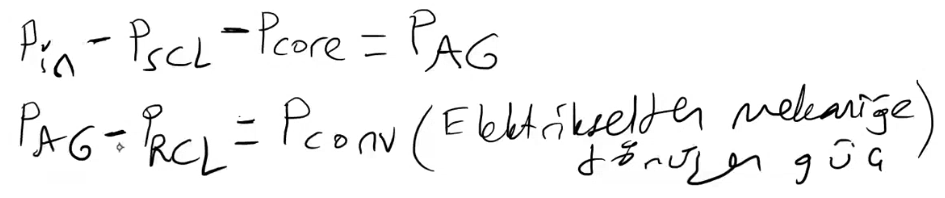 Pin - PSCL - Pcore = PAG
PAG - PRCL = Pconv (Elektrikselden mekaniğe
dönüşen güç)